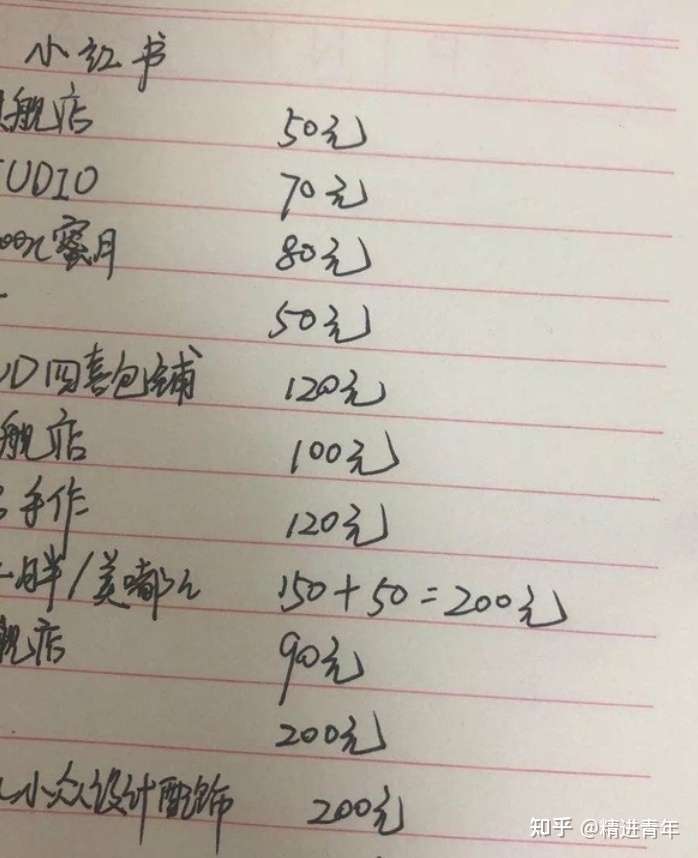 小红书
舰店 50元
UDIO 70元
蜜月 80元
50元
四喜包铺 120元
舰店 100元
手作 120元
胖/美嘟儿 150+50=200元
舰店 90元
200元
小众设计配饰 200元
知乎 @精进青年